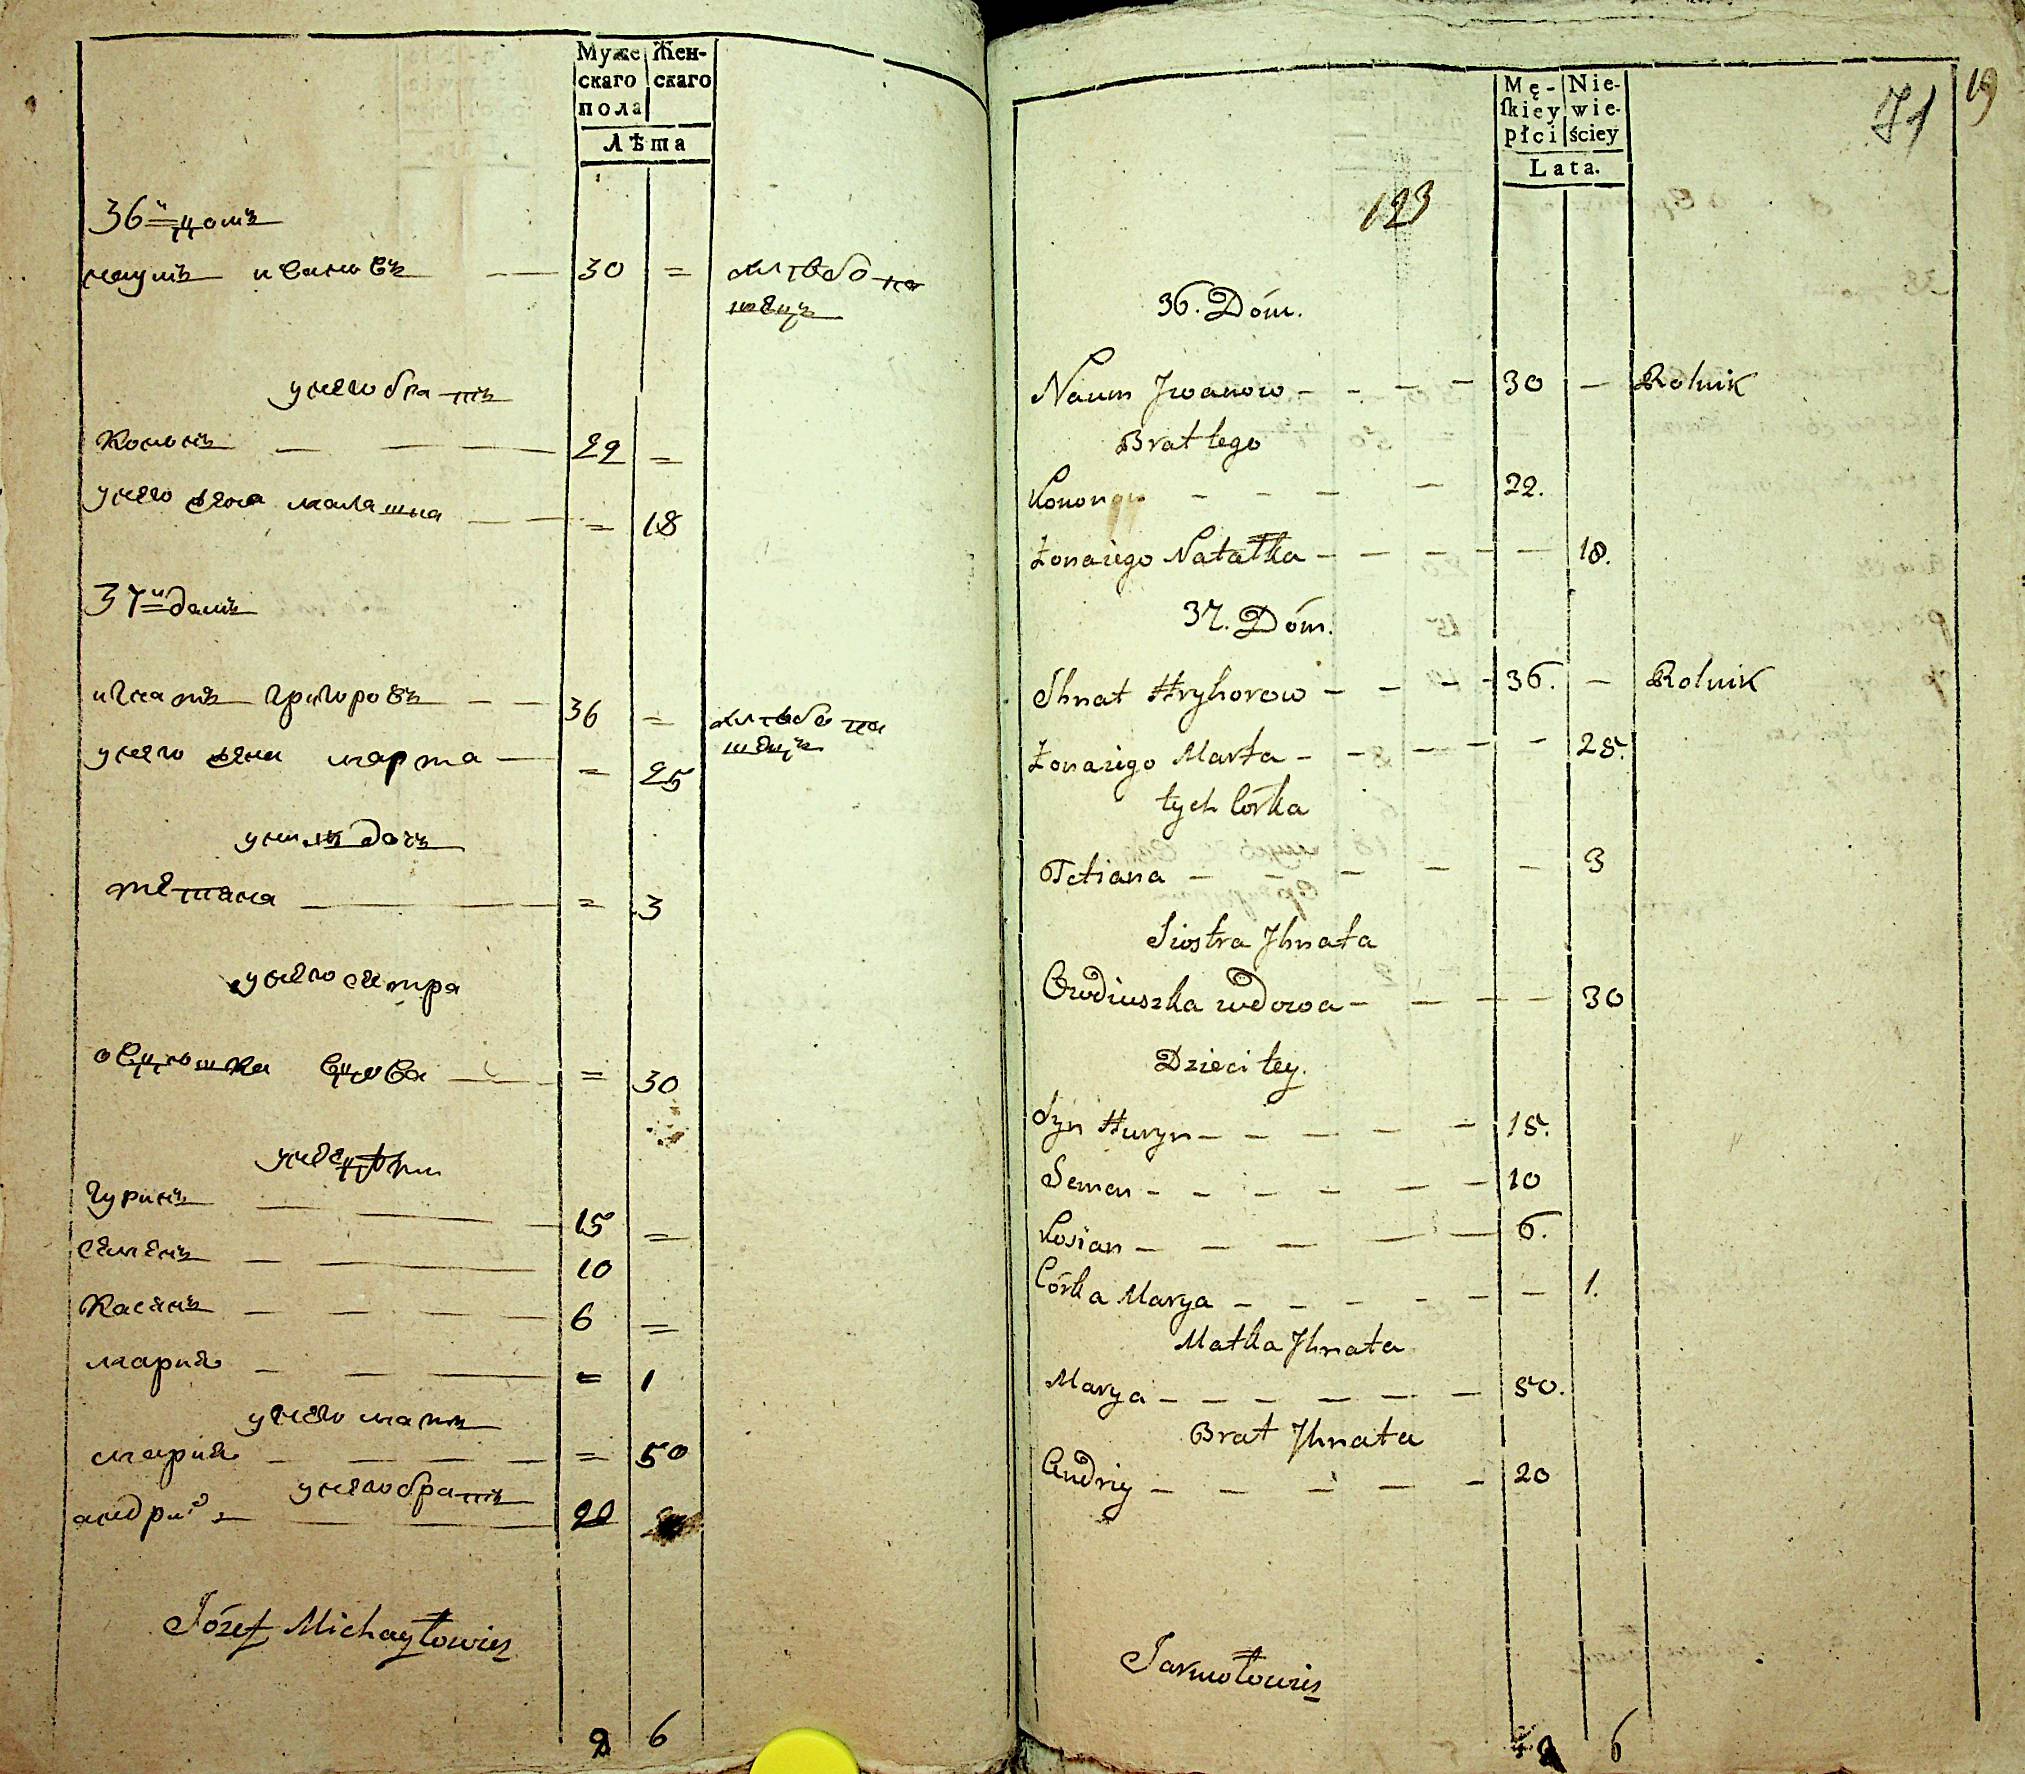 Муже Жен-
скаго скаго
пола
Лѣта
36й домъ
наумъ ивановъ — — 30 = хлѣбопа
шецъ
у него братъ
Кононъ — — — 22 =
у него жена малашка — — = 18
37й домъ
игнатъ григоровъ — — 36 = хлѣбопа
шецъ
у него жена марта — = 25
у нихъ дочъ
тетяна — — = 3
у него сестра
овдюшка вдова — — = 30
у нее дѣти
гуринъ — — — 15 =
семенъ — — 10
Касянъ — — — 6 =
мария — — — = 1
у него матъ
мария — — — — = 50
у него братъ
андрий — — 20
Józef Michayłowicz
6
71
19
Mę- Nie-
skiey wie-
płci ściey
Lata.
123
36. Dóm.
Naum Jwanow - - - - 30 — Rolnik
Brat tego
Konon - - - - 22.
Żona iego Natałka - - - - - 18.
37. Dóm.
Jhnat Hryhorow - - - - 36. — Rolnik
Żona iego Marta - - - - - 25.
tych Córka
Tetiana - - - - - 3
Siostra Jhnata
Owdiuszka wdowa - - - - 30
Dzieci tey.
Syn Huryn - - - - - 15.
Semen - - - - - - 10
Kosian - - - - - 6.
Córka Marya - - - - - - 1.
Matka Jhnata
Marya - - - - - - 50.
Brat Jhnata
Andriy - - - - - 20
Jarmołowicz
6